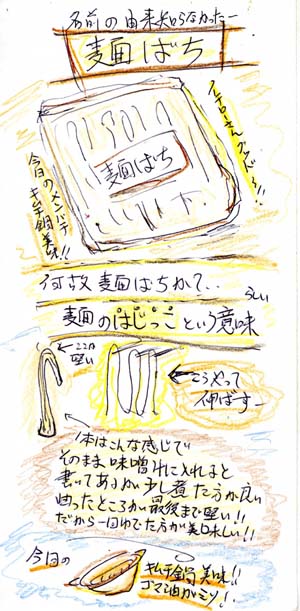 名前の由来知らなかったー
麺ばち
麺ばち
今日のメンバチ
キムチ鍋美味!!
何故麺ばちかて..
麺のはじっこという意味
らしい
ココが
堅い
こうやって
伸ばすー
1本はこんな感じで
そのまま味噌汁に入れると
書いてあるが少し煮た方が良い
曲ったところが最後まで堅い!!
だから一回ゆでた方が美味しい!!
今日の
キムチ鍋美味!!
ゴマ油がミソ!